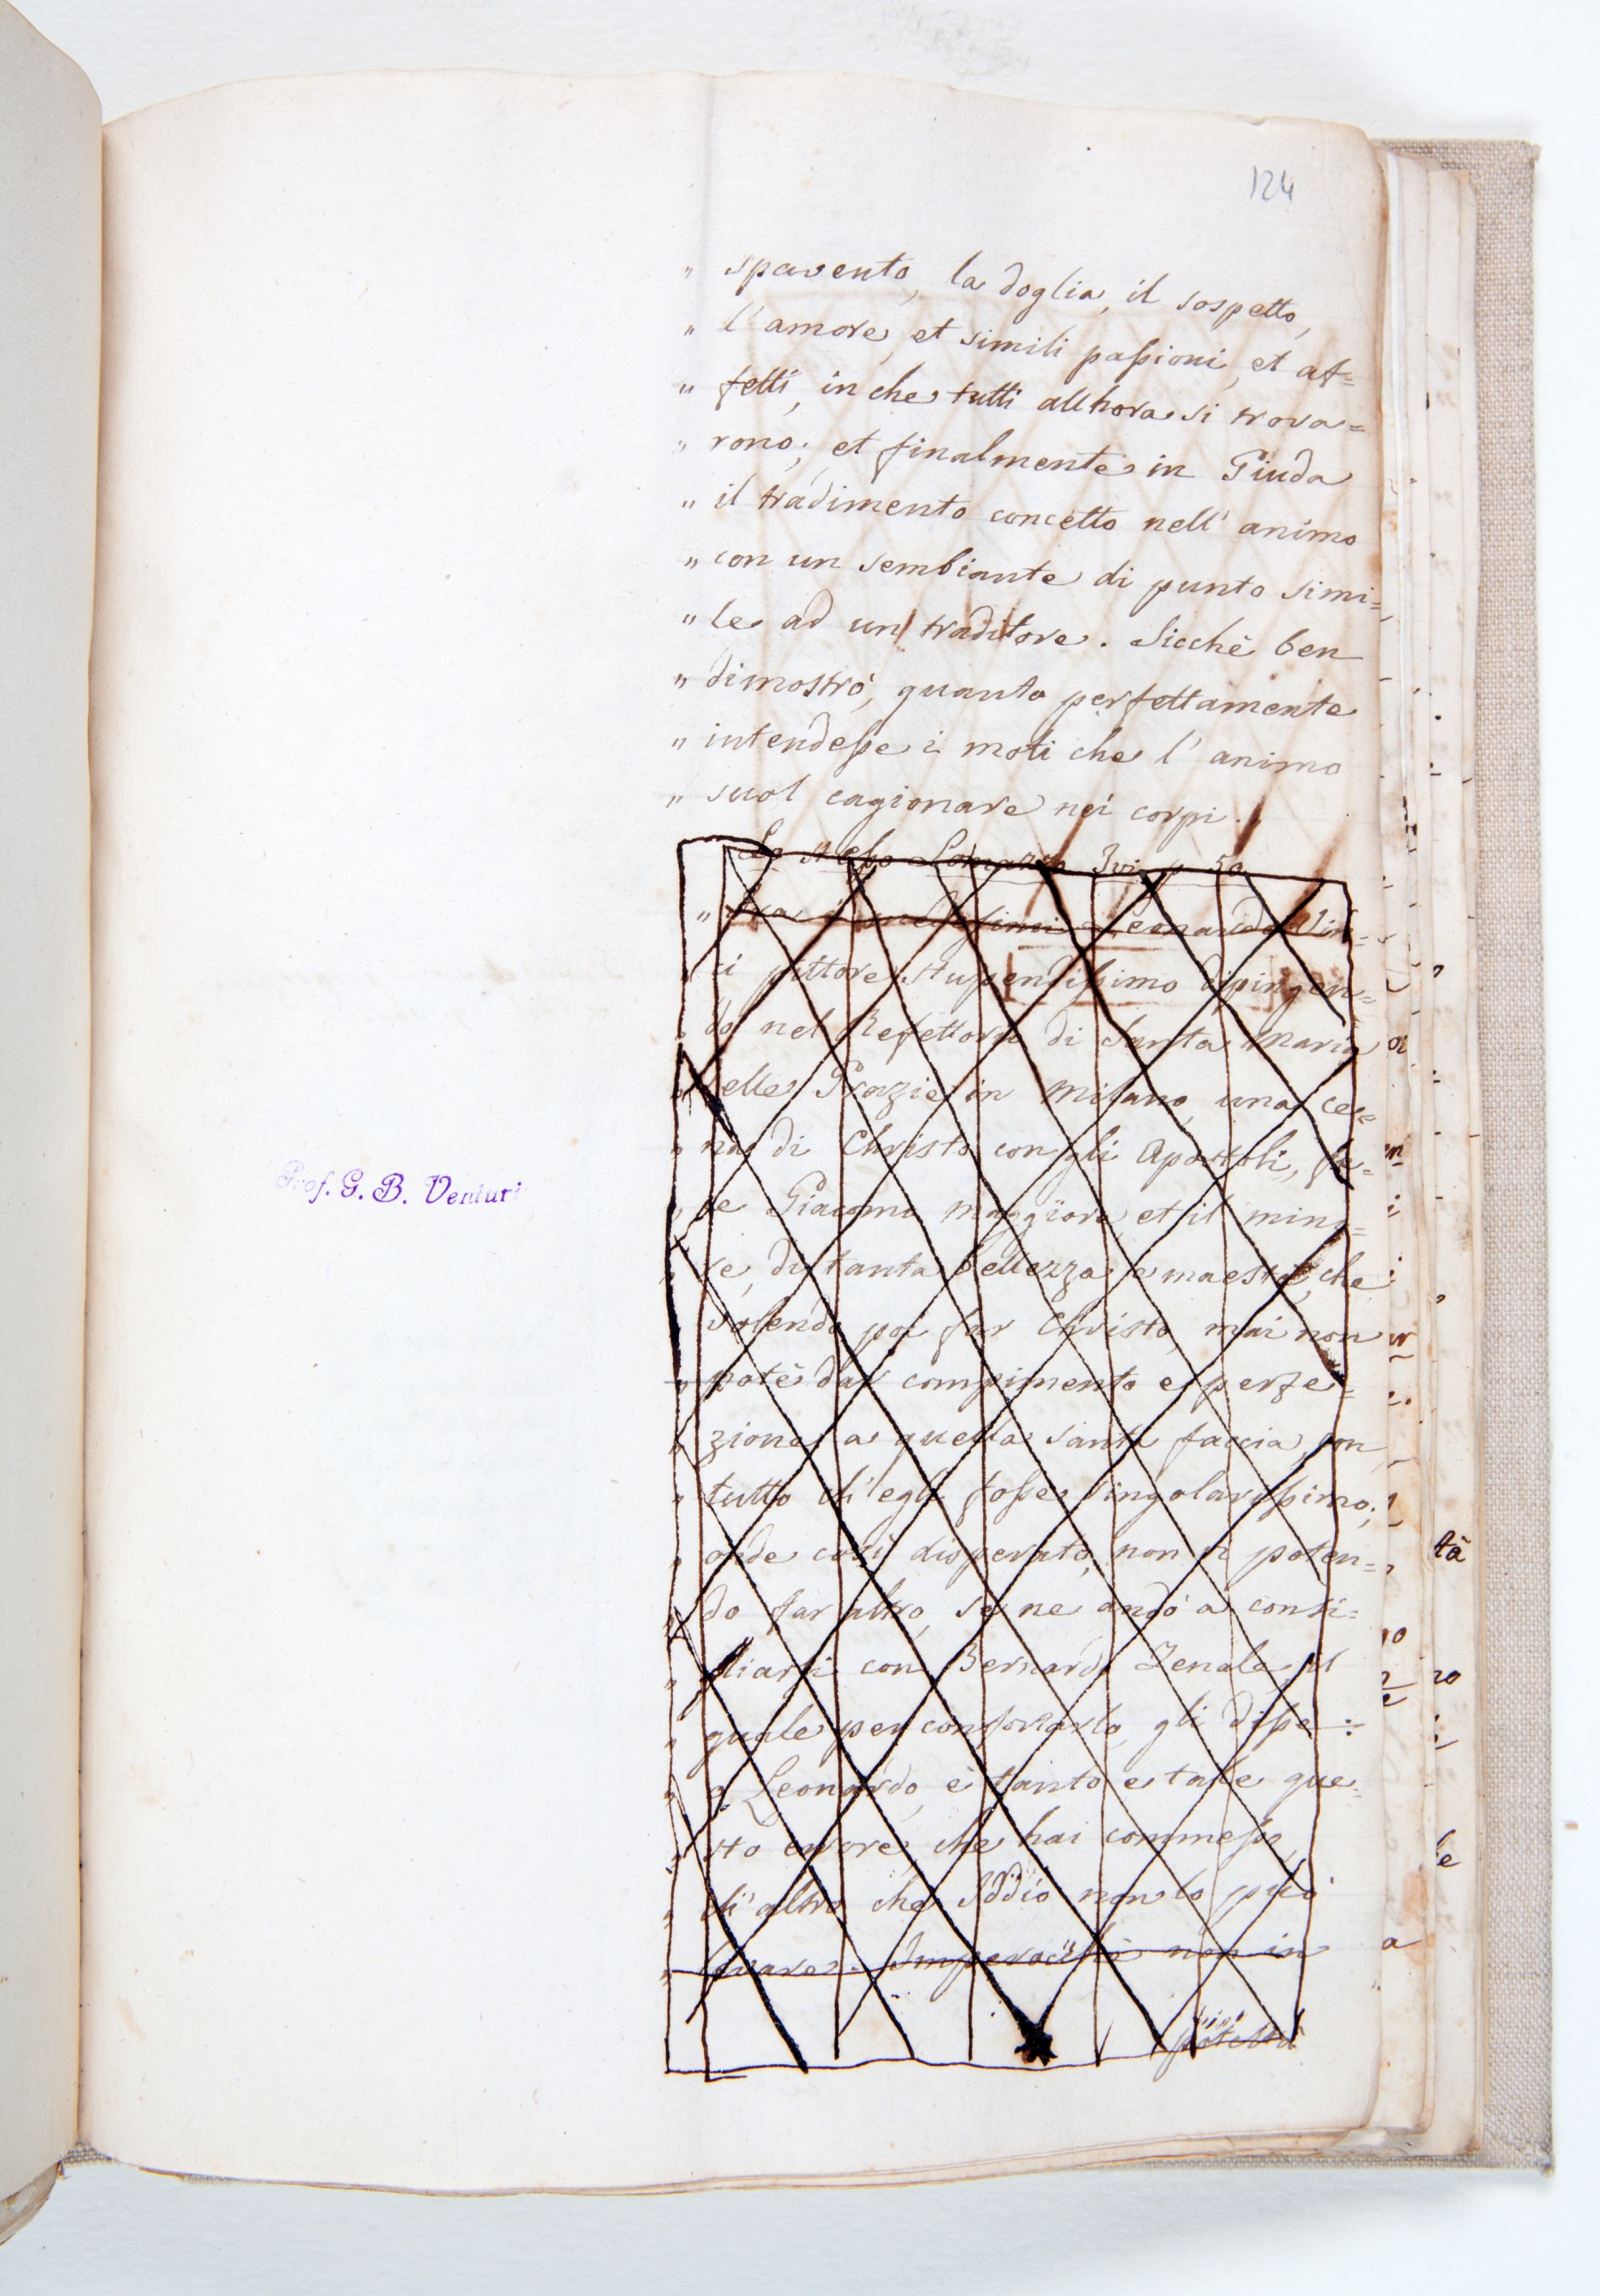 124
" spavento, la doglia, il sospetto,
" l'amore, et simili passioni, et af=
" fetti, in che tutti allhora si trova=
" rono; et finalmente in Giuda
" il tradimento concetto nell' animo
" con un sembiante di punto simi=
" le ad un traditore. Sicchè ben
" dimostrò, quanto perfettamente
" intendesse i moti che l' animo
" suol cagionare nei corpi.
Lo stesso Lomazzo Ivi p 50
" Leonardo Vin=
" ci pittore stupendissimo dipingen=
" do nel Refettorio di Santa Maria
" delle Grazie in Milano una ce=
" na di Christo con gli Apostoli, fe=
" ce Giacomo maggiore et il mino=
" re, di tanta bellezza e maestà, che
" volendo poi far Christo, mai non
" potè dar compimento e perfe=
" zione a quella santa faccia, con
" tutto ch' egli fosse singolarissimo;
" onde così disperato, non vi poten=
" do far altro, se ne andò a consi=
" gliarsi con Bernardo Zenale, il
" quale per confortarlo, gli disse:
" o Leonardo, è tanto e tale que=
" sto errore, che hai commesso,
" ch' altro che Iddio non lo può
" levare. Imperocchè non in
potestà
Prof. G. B. Venturi